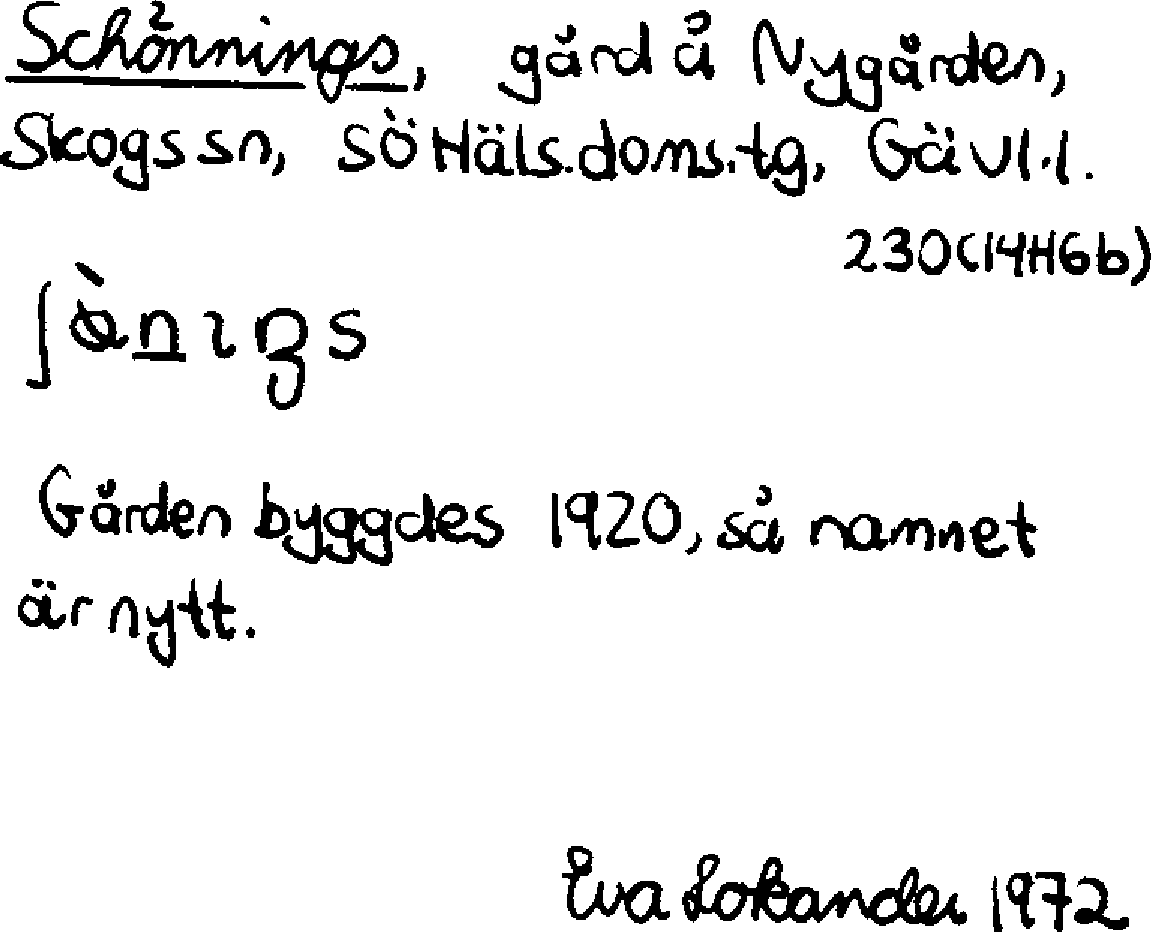 Schönnings, gård å Nygården,
Skogs sn, sö Häls. doms. tg, Gävl. l.
230 (14H6b)
Gården byggdes 1920, så namnet
är nytt.
Eva Lokander 1972